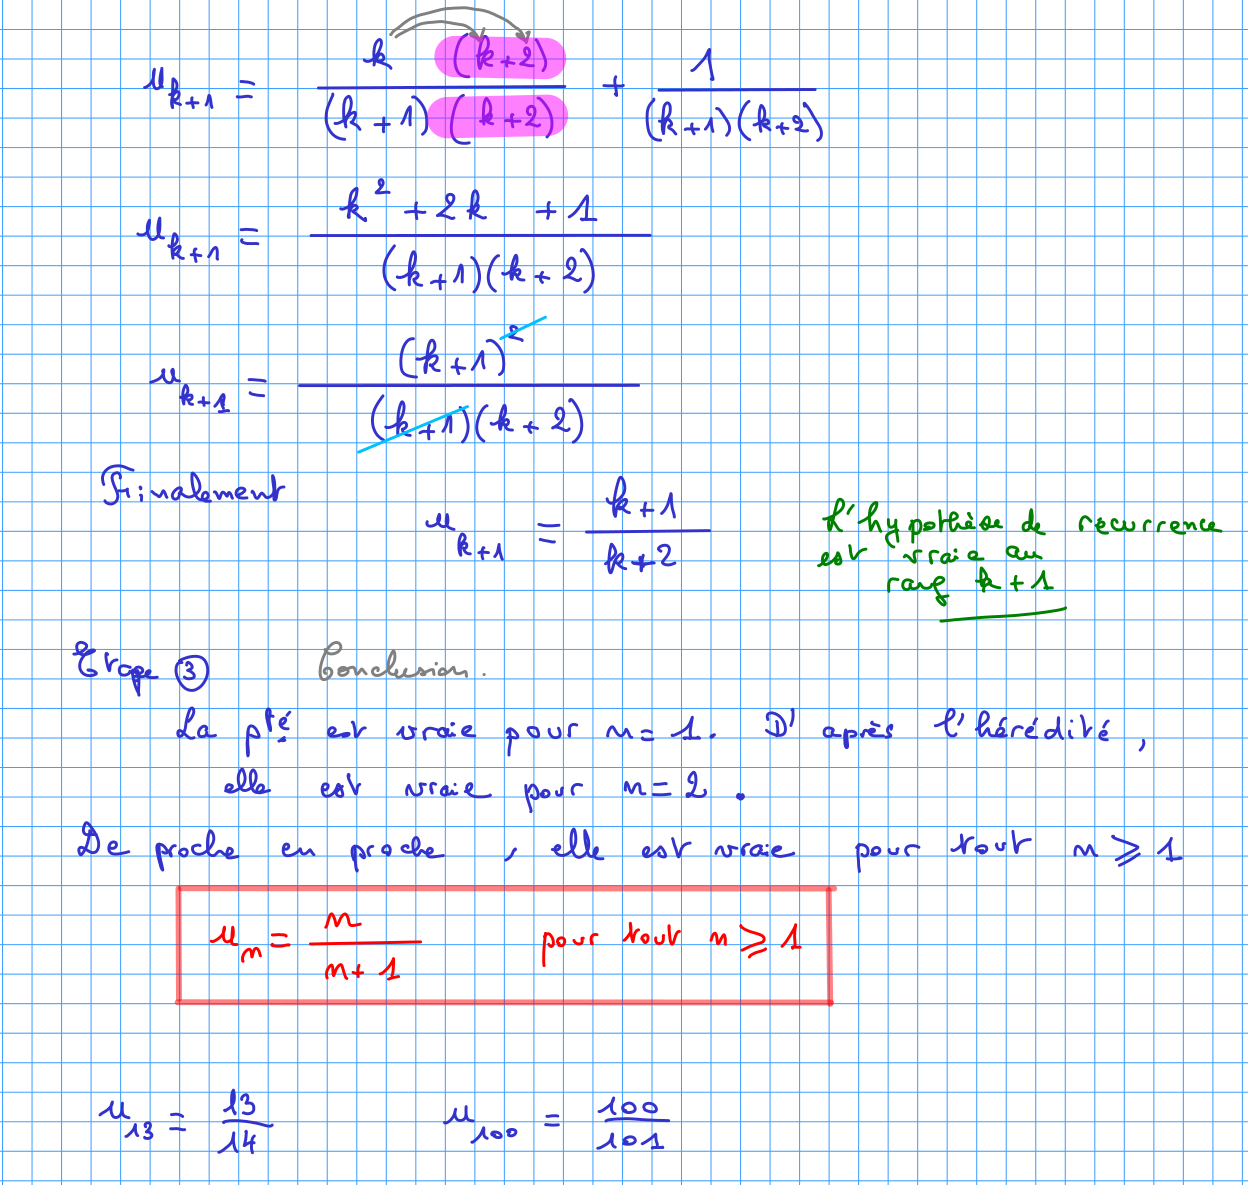 u_{k+1} = \frac{k (k+2)}{(k+1)(k+2)} + \frac{1}{(k+1)(k+2)}
u_{k+1} = \frac{k^2 + 2k + 1}{(k+1)(k+2)}
u_{k+1} = \frac{(k+1)^2}{(k+1)(k+2)}
Finalement u_{k+1} = \frac{k+1}{k+2}
L'hypothèse de recurrence
est vraie au
rang k+1
Etape ③ Conclusion.
La pté est vraie pour n = 1. D'après l'hérédité,
elle est vraie pour n = 2.
De proche en proche, elle est vraie pour tout n ⩾ 1
u_n = \frac{n}{n+1} pour tout n ⩾ 1
u_{13} = \frac{13}{14} u_{100} = \frac{100}{101}